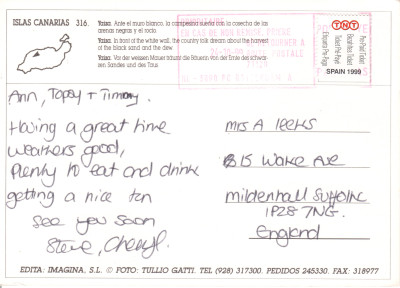 ISLAS CANARIAS 316.
Yaiza. Ante el muro blanco, la campesina sueña con la cosecha de las
arenas negras y el rocío.
Yaiza. In front of the white wall, the country folk dream about the harvest
of the black sand and the dew.
Yaiza. Vor der weissen Mauer träumt die Bäuerin von der Ernte des schwar-
zen Sandes und des Taus.
TNT
Post Paid Ticket
SPAIN 1999
Ann, Topsy + Timmy.
Having a great time
weathers good,
Plenty to eat and drink
getting a nice tan
see you soon
Steve, Cheryl.
Mrs A Leeks
15 Wake Ave
Mildenhall Suffolk
IP28 7NG.
England
EDITA: IMAGINA, S.L. © FOTO: TULLIO GATTI. TEL (928) 317300. PEDIDOS 245330. FAX: 318977